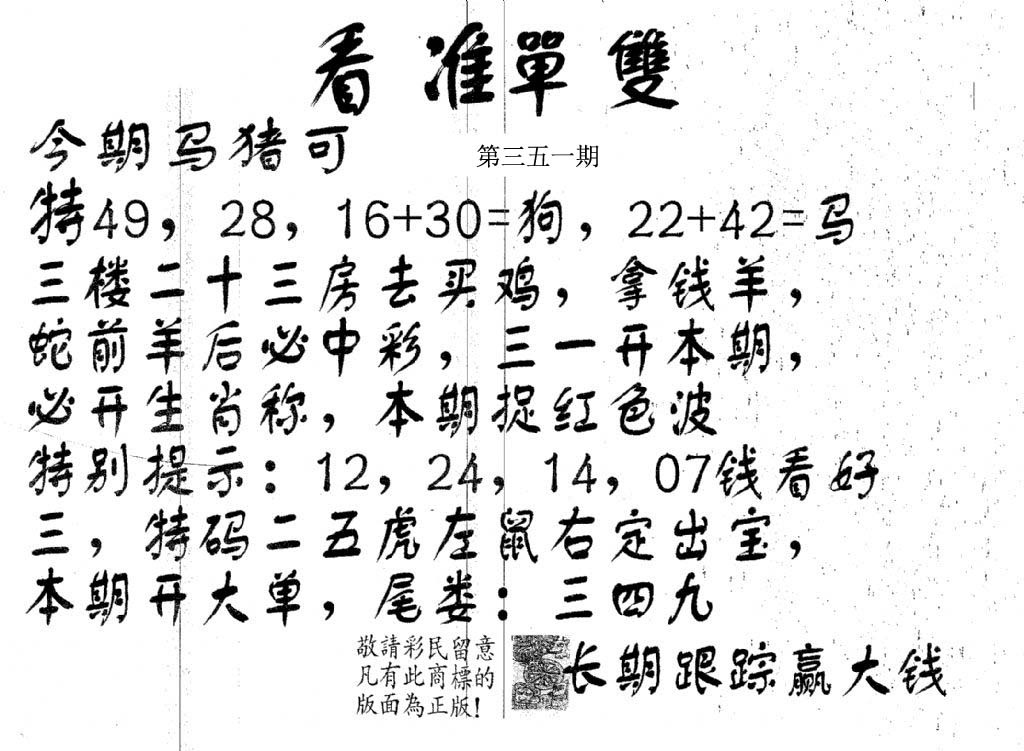 看准單雙
今期马猪可
第三五一期
特49，28，16+30=狗，22+42=马
三楼二十三房去买鸡，拿钱羊，
蛇前羊后必中彩，三一开本期，
必开生肖称，本期捉红色波
特别提示：12，24，14，07钱看好
三，特码二五虎左鼠右定出宝，
本期开大单，尾娄：三四九
敬請彩民留意
凡有此商標的
版面為正版！
长期跟踪赢大钱